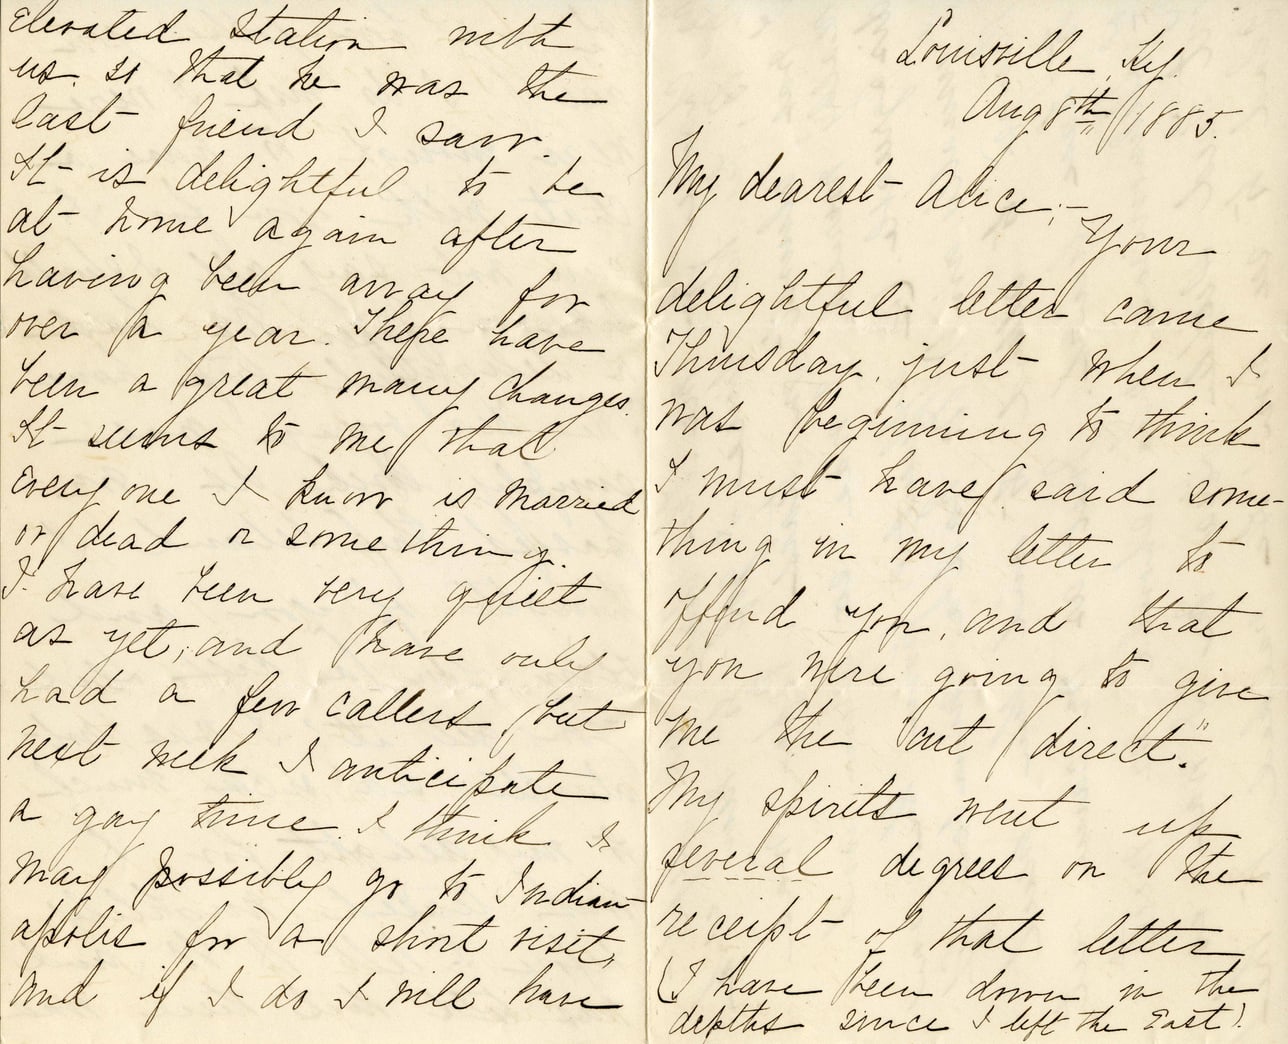 Louisville, Ky.
Aug 8th, 1885.
My dearest Alice;-
Your
delightful letter came
Thursday, just when I
was beginning to think
I must have said some-
thing in my letter to
offend you, and that
you were going to give
me the "cut direct".
My spirits went up
several degrees on the
receipt of that letter
(I have been down in the
depths since I left the East).
Elevated Station with
us. so that he was the
last friend I saw.
It is delightful to be
at home again after
having been away for
over a year. There have
been a great many changes.
It seems to me that
every one I know is married
or dead or something.
I have been very quiet
as yet, and have only
had a few callers, but
next week I anticipate
a gay time. I think I
may possibly go to Indian-
apolis for a short visit,
and if I do I will have